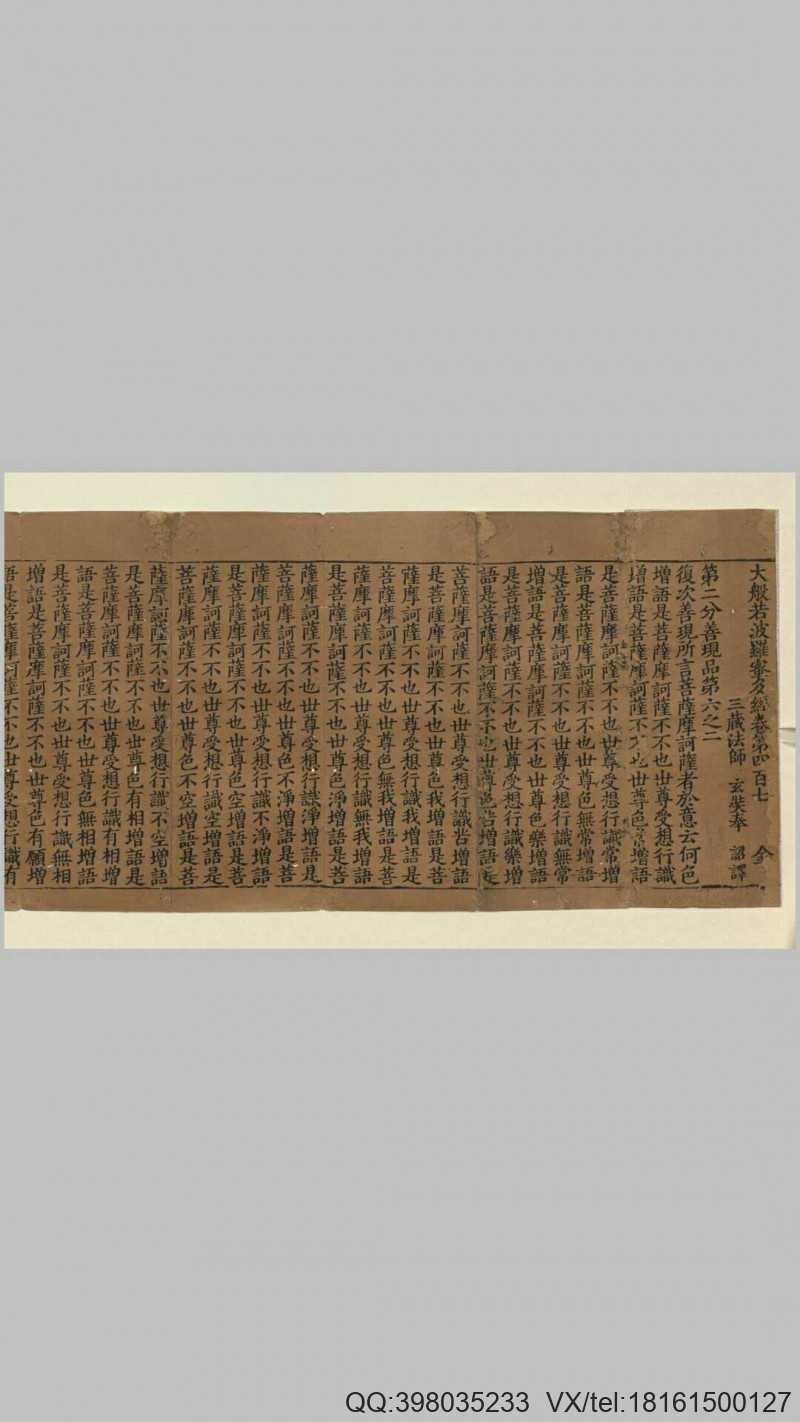 大般若波羅蜜多經卷第四百七 柰
三藏法師 玄奘奉 詔譯
第二分善現品第六之二
復次善現所言菩薩摩訶薩者於意云何色
增語是菩薩摩訶薩不不也世尊受想行識
增語是菩薩摩訶薩不不也世尊色常增語
是菩薩摩訶薩不不也世尊受想行識常增
語是菩薩摩訶薩不不也世尊色無常增語
是菩薩摩訶薩不不也世尊受想行識無常
增語是菩薩摩訶薩不不也世尊色樂增語
是菩薩摩訶薩不不也世尊受想行識樂增
語是菩薩摩訶薩不不也世尊色苦增語是
菩薩摩訶薩不不也世尊受想行識苦增語
是菩薩摩訶薩不不也世尊色我增語是菩
薩摩訶薩不不也世尊受想行識我增語是
菩薩摩訶薩不不也世尊色無我增語是菩
薩摩訶薩不不也世尊受想行識無我增語
是菩薩摩訶薩不不也世尊色淨增語是菩
薩摩訶薩不不也世尊受想行識淨增語是
菩薩摩訶薩不不也世尊色不淨增語是菩
薩摩訶薩不不也世尊受想行識不淨增語
是菩薩摩訶薩不不也世尊色空增語是菩
薩摩訶薩不不也世尊受想行識空增語是
菩薩摩訶薩不不也世尊色不空增語是菩
薩摩訶薩不不也世尊受想行識不空增語
是菩薩摩訶薩不不也世尊色有相增語是
菩薩摩訶薩不不也世尊受想行識有相增
語是菩薩摩訶薩不不也世尊色無相增語
是菩薩摩訶薩不不也世尊受想行識無相
增語是菩薩摩訶薩不不也世尊色有願增
語是菩薩摩訶薩不不也世尊受想行識有
QQ:398035233 VX/tel:18161500127